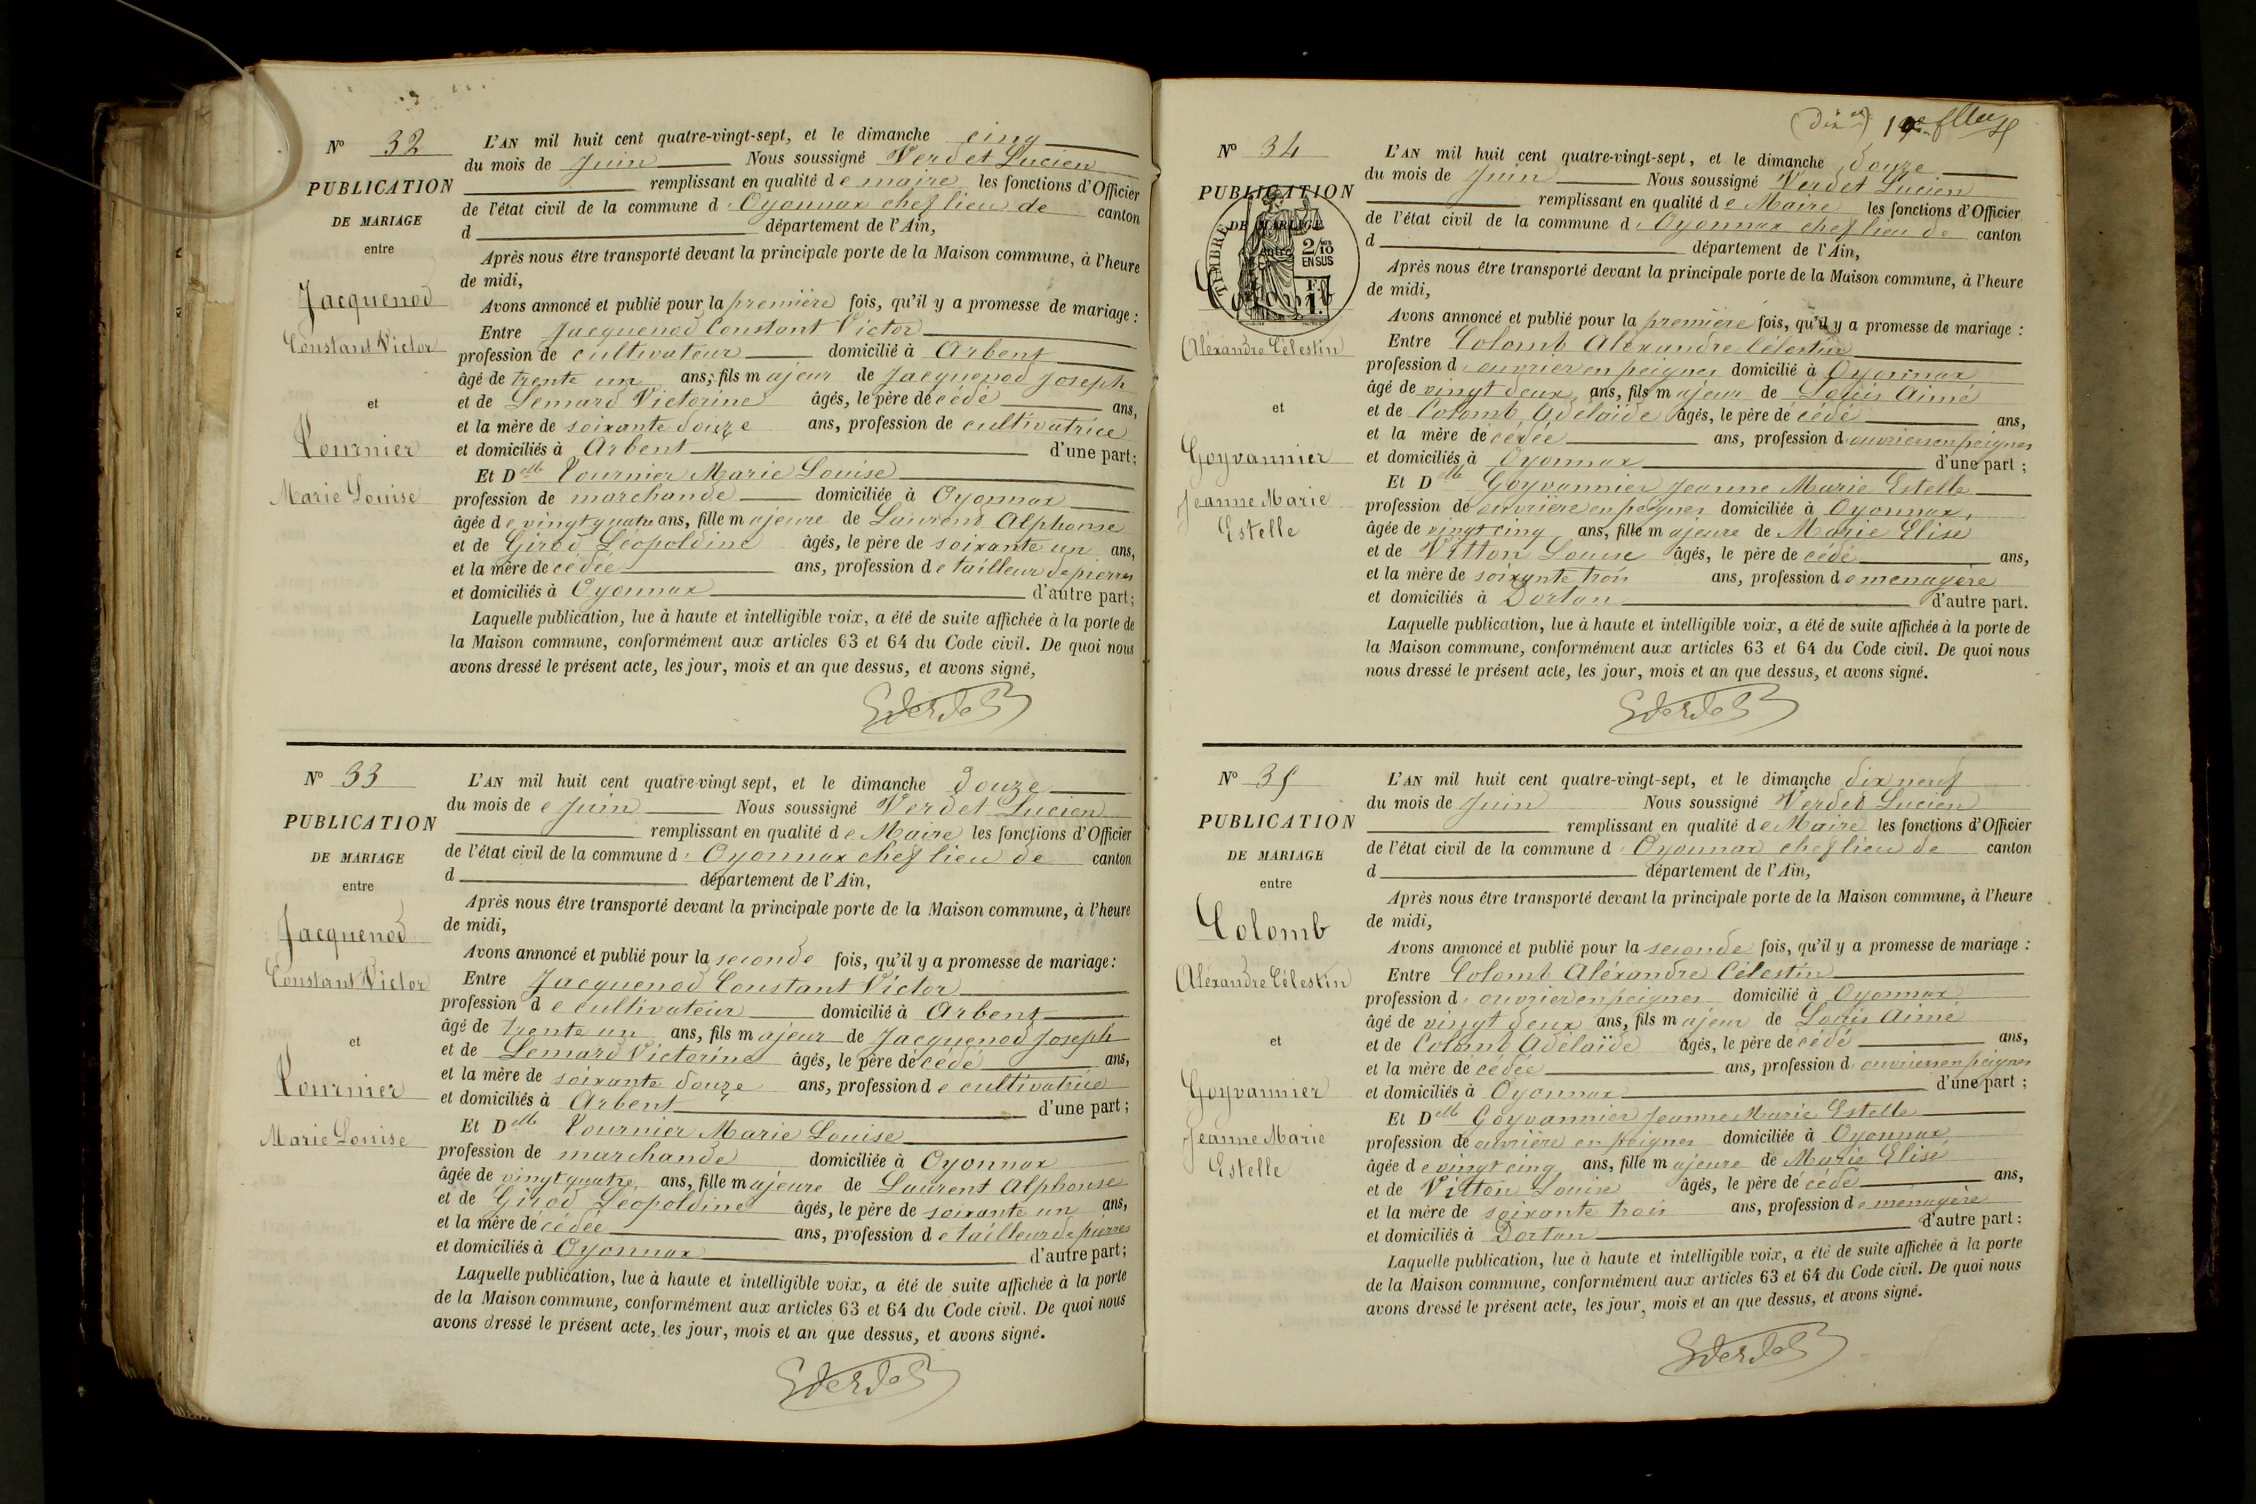 N° 32
PUBLICATION
DE MARIAGE
entre
Jacquenod
Constant Victor
et
Tournier
Marie Louise
L'AN mil huit cent quatre-vingt-sept, et le dimanche cinq
du mois de Juin Nous soussigné Verdet Lucien
remplissant en qualité de maire les fonctions d'Officier
de l'état civil de la commune d'Oyonnax chef lieu de canton
d département de l'Ain,
Après nous être transporté devant la principale porte de la Maison commune, à l'heure
de midi,
Avons annoncé et publié pour la première fois, qu'il y a promesse de mariage :
Entre Jacquenod Constant Victor
profession de cultivateur domicilié à Arbent
âgé de trente un ans, fils majeur de Jacquenod Joseph
et de Lemard Victorine âgés, le père décédé ans,
et la mère de soixante douze ans, profession de cultivatrice
et domiciliés à Arbent d'une part;
Et Delle Tournier Marie Louise
profession de marchande domiciliée à Oyonnax
âgée de vingt quatre ans, fille majeure de Laurent Alphonse
et de Girod Léopoldine âgés, le père de soixante un ans,
et la mère décédée ans, profession de tailleur de pierres
et domiciliés à Oyonnax d'autre part;
Laquelle publication, lue à haute et intelligible voix, a été de suite affichée à la porte de
la Maison commune, conformément aux articles 63 et 64 du Code civil. De quoi nous
avons dressé le présent acte, les jour, mois et an que dessus, et avons signé,
LVerdet
N° 33
PUBLICATION
DE MARIAGE
entre
Jacquenod
Constant Victor
et
Tournier
Marie Louise
L'AN mil huit cent quatre-vingt sept, et le dimanche douze
du mois de Juin Nous soussigné Verdet Lucien
remplissant en qualité de Maire les fonctions d'Officier
de l'état civil de la commune d'Oyonnax chef lieu de canton
d département de l'Ain,
Après nous être transporté devant la principale porte de la Maison commune, à l'heure
de midi,
Avons annoncé et publié pour la seconde fois, qu'il y a promesse de mariage:
Entre Jacquenod Constant Victor
profession de cultivateur domicilié à Arbent
âgé de trente un ans, fils majeur de Jacquenod Joseph
et de Lemard Victorine âgés, le père décédé ans,
et la mère de soixante douze ans, profession de cultivatrice
et domiciliés à Arbent d'une part;
Et Delle Tournier Marie Louise
profession de marchande domiciliée à Oyonnax
âgée de vingt quatre ans, fille majeure de Laurent Alphonse
et de Girod Léopoldine âgés, le père de soixante un ans,
et la mère décédée ans, profession de tailleur de pierres
et domiciliés à Oyonnax d'autre part;
Laquelle publication, lue à haute et intelligible voix, a été de suite affichée à la porte
de la Maison commune, conformément aux articles 63 et 64 du Code civil. De quoi nous
avons dressé le présent acte, les jour, mois et an que dessus, et avons signé.
LVerdet
N° 34
PUBLICATION
DE MARIAGE
entre
TIMBRE
2/10
EN SUS
1 F.
Colomb
Aléxandre Célestin
et
Goyvannier
Jeanne Marie
Estelle
L'AN mil huit cent quatre-vingt-sept, et le dimanche douze
du mois de Juin Nous soussigné Verdet Lucien
remplissant en qualité de Maire les fonctions d'Officier
de l'état civil de la commune d'Oyonnax chef lieu de canton
d département de l'Ain,
Après nous être transporté devant la principale porte de la Maison commune, à l'heure
de midi,
Avons annoncé et publié pour la première fois, qu'il y a promesse de mariage :
Entre Colomb Aléxandre Célestin
profession d'ouvrier en peignes domicilié à Oyonnax
âgé de vingt deux ans, fils majeur de Louis Aimé
et de Colomb Adélaïde âgés, le père décédé ans,
et la mère décédée ans, profession d'ouvriers en peignes
et domiciliés à Oyonnax d'une part ;
Et Delle Goyvannier Jeanne Marie Estelle
profession de ouvrière en peignes domiciliée à Oyonnax,
âgée de vingt cinq ans, fille majeure de Marie Elisé
et de Vitton Louise âgés, le père décédé ans,
et la mère de soixante trois ans, profession de menagère
et domiciliés à Dortan d'autre part.
Laquelle publication, lue à haute et intelligible voix, a été de suite affichée à la porte de
la Maison commune, conformément aux articles 63 et 64 du Code civil. De quoi nous
nous dressé le présent acte, les jour, mois et an que dessus, et avons signé.
LVerdet
N° 35
PUBLICATION
DE MARIAGE
entre
Colomb
Aléxandre Célestin
et
Goyvannier
Jeanne Marie
Estelle
L'AN mil huit cent quatre-vingt-sept, et le dimanche dix neuf
du mois de Juin Nous soussigné Verdet Lucien
remplissant en qualité de Maire les fonctions d'Officier
de l'état civil de la commune d'Oyonnax chef lieu de canton
d département de l'Ain,
Après nous être transporté devant la principale porte de la Maison commune, à l'heure
de midi,
Avons annoncé et publié pour la seconde fois, qu'il y a promesse de mariage :
Entre Colomb Aléxandre Célestin
profession d'ouvrier en peignes domicilié à Oyonnax
âgé de vingt deux ans, fils majeur de Louis Aimé
et de Colomb Adélaïde âgés, le père décédé ans,
et la mère décédée ans, profession d'ouvriers en peignes
et domiciliés à Oyonnax d'une part ;
Et Delle Goyvannier Jeanne Marie Estelle
profession de ouvrière en peignes domiciliée à Oyonnax
âgée de vingt cinq ans, fille majeure de Marie Elisé
et de Vitton Louise âgés, le père décédé ans,
et la mère de soixante trois ans, profession de menagère
et domiciliés à Dortan d'autre part;
Laquelle publication, lue à haute et intelligible voix, a été de suite affichée à la porte
de la Maison commune, conformément aux articles 63 et 64 du Code civil. De quoi nous
avons dressé le présent acte, les jour, mois et an que dessus, et avons signé.
LVerdet